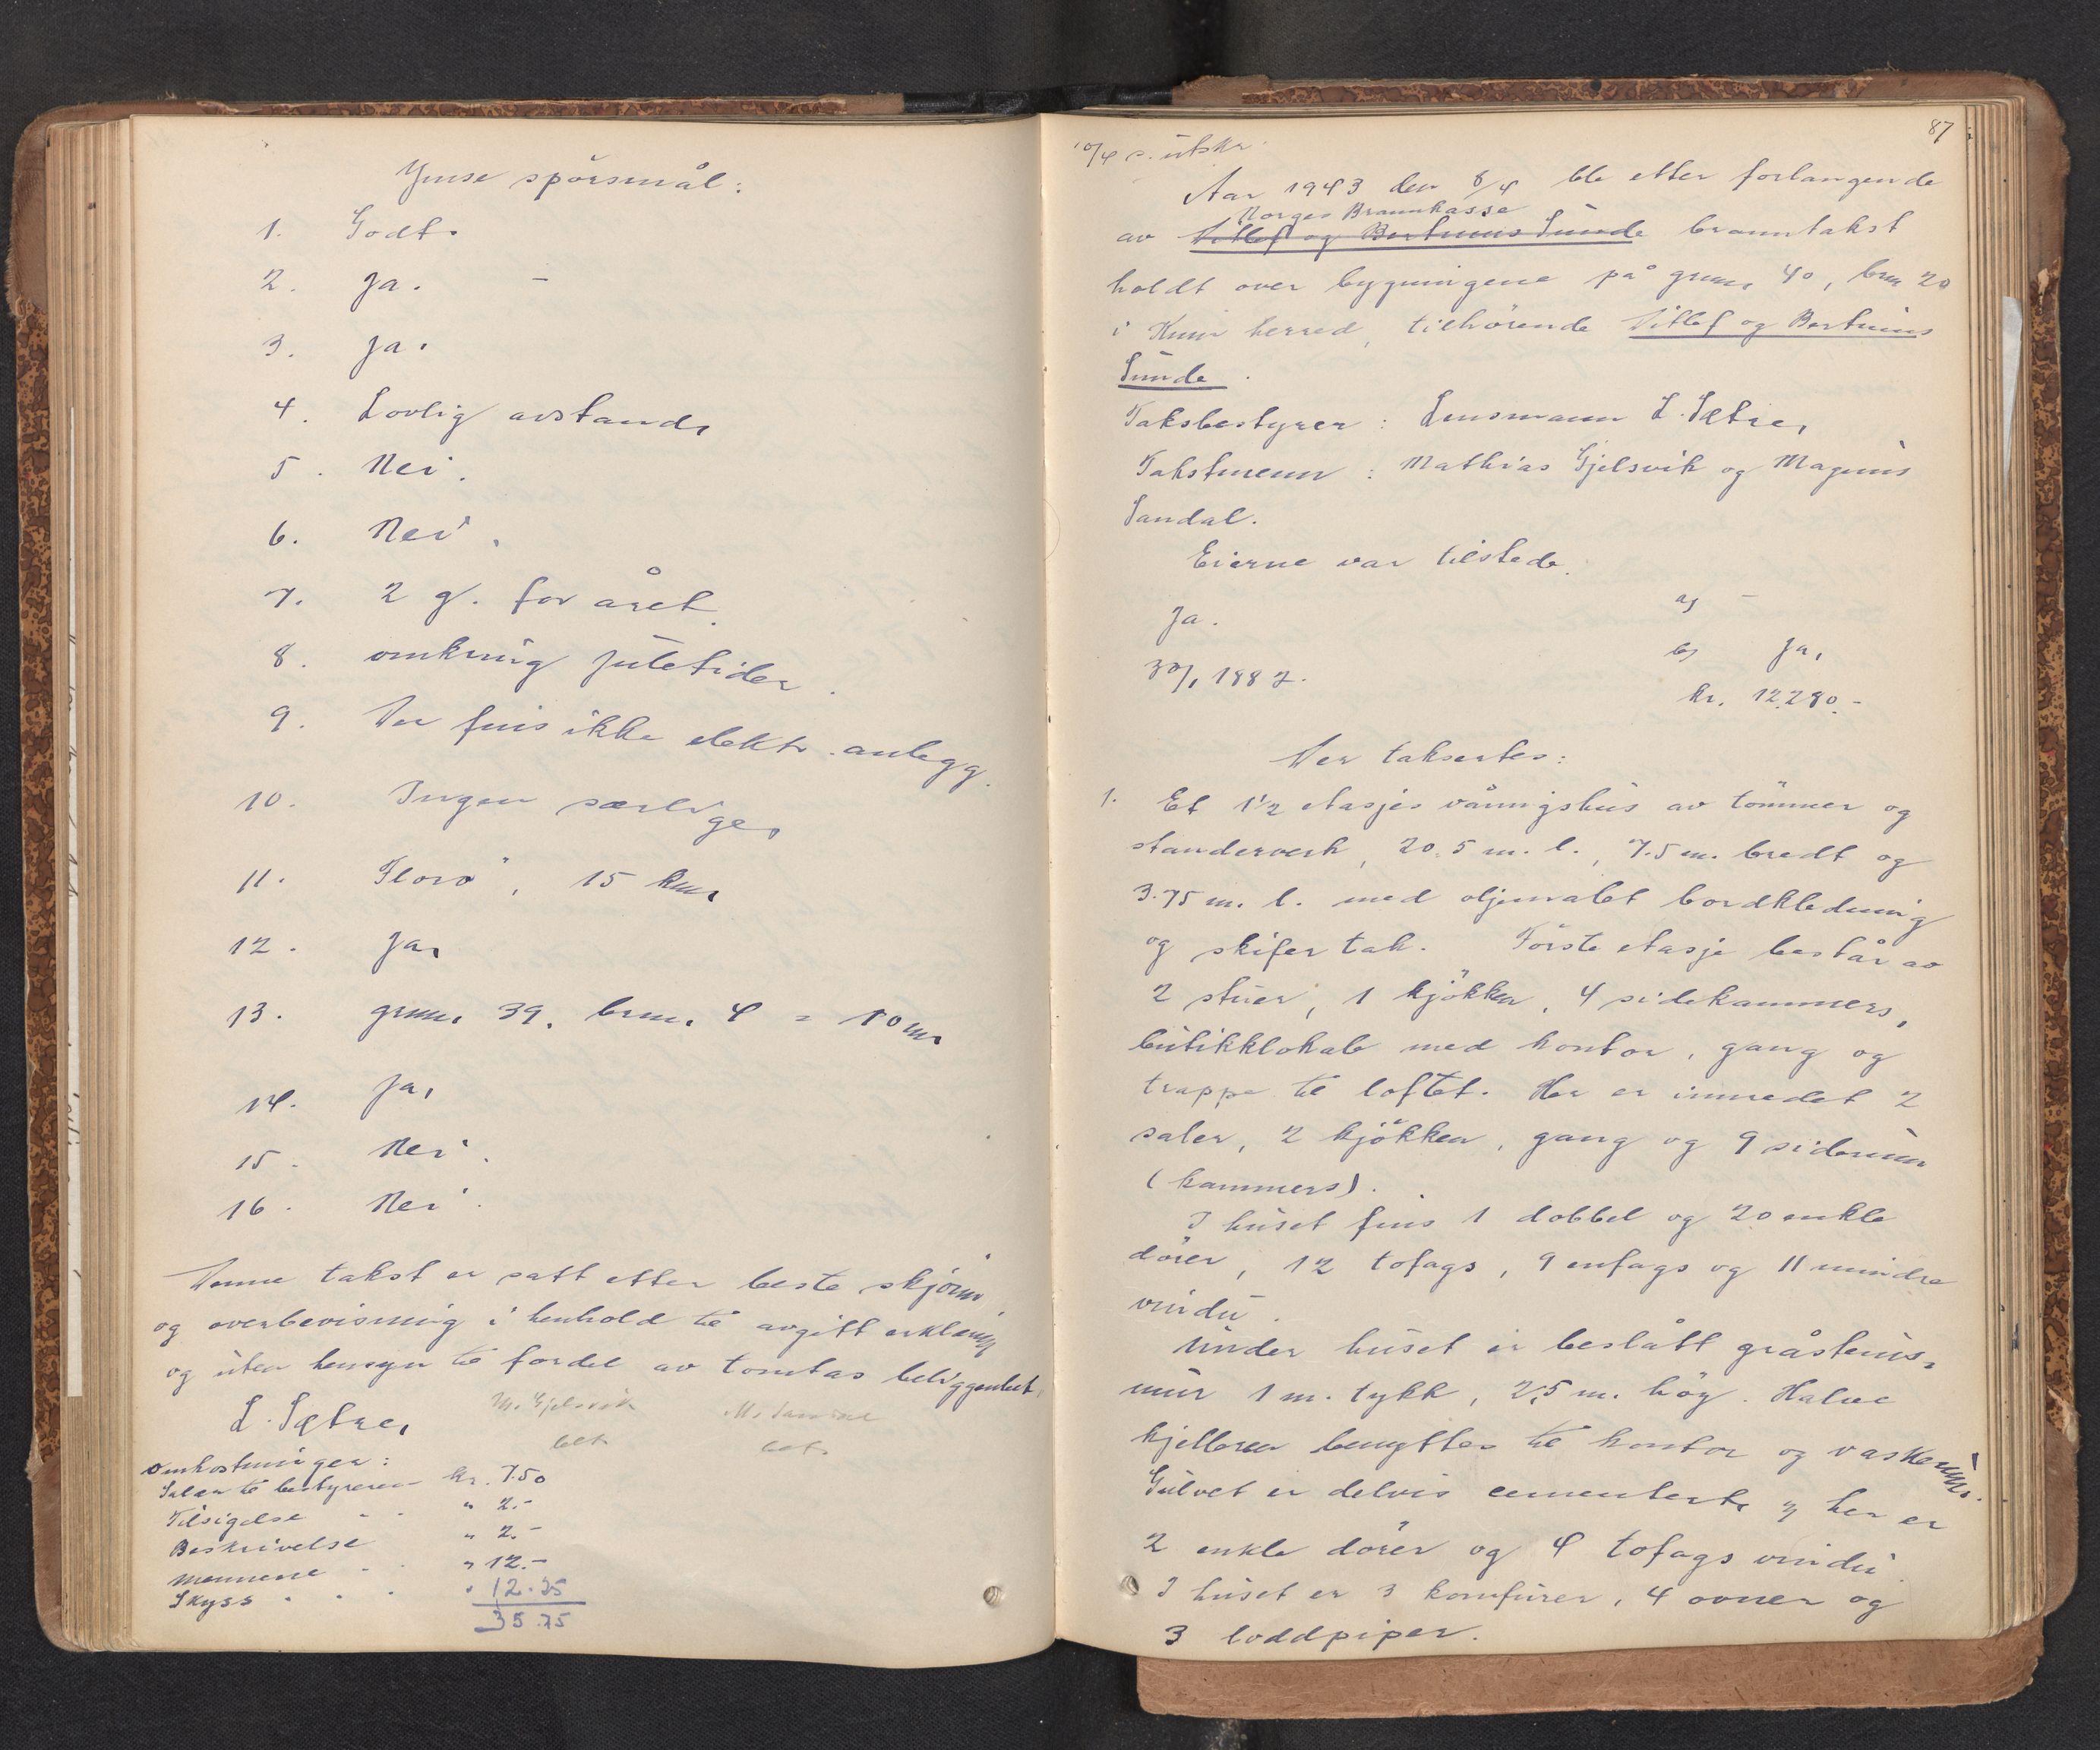 Ymse spörsmål:
1. Godt.
2. Ja. -
3. Ja.
4. Lovlig avstand.
5. Nei.
6. Nei.
7. 2 g. for året.
8. omkring juletider.
9. Der fins ikke elektr. anlegg.
10. Ingen særlige.
11. Florö, 15 km.
12. Ja.
13. grnr. 39, brnr. 4 = 10 m.
14. Ja.
15. Nei.
16. Nei.
Denne takst er satt efter beste skjönn
og overbevisning i henhold til avgitt erklæring
og uten hensyn til fordel av tomtas beliggenhet.
L. Sætre. M. Gjelsvik M. Sandal
bet. bet.
Omkostninger:
Salær til bestyreren kr. 7.50
Tilsigelse - - " 2.-
Beskrivelse " 2.-
Mennene - - " 12.-
Skyss - - - " 12.25
35.75
87
10/4 s. utskr.
Aar 1943 den 8/4 ble etter forlangende
Norges Brannkasse
av Ditlef og Bertinus Sunde branntakst
holdt over bygningene på grnr. 40, brnr 20
i Kinn herred, tilhörende Ditlef og Bertinus
Sunde.
Taksbestyrer: Lensmann L. Sætre.
Takstmenn: Mathias Gjelsvik og Magnus
Sandal.
Eierne var tilstede.
Ja. a) -
b) Ja,
30/1 1882. kr. 12.280.-
Der taksertes:
1. Et 1 1/2 etasjes våningshus av tömmer og
standerverk, 20.5 m. l., 7.5 m. bredt og
3.75 m. l. med oljemalet bordkledning
og skifer tak. Förste etasje består av
2 stuer, 1 kjökken, 4 sidekammers,
butikklokale med kontor, gang og
trappe til loftet. Her er innredet 2
saler, 2 kjökken, gang og 9 siderum
(kammers).
I huset fins 1 dobbel og 20 enkle
dörer, 12 tofags, 9 enfags og 11 mindre
vindu.
Under huset er beslått gråsteins-
mur 1 m. tykk, 2,5 m. höy. Halve
kjelleren benyttes til kontor og vaskerum.
Gulvet er delvis cementert og her er
2 enkle dörer og 4 tofags vindu.
I huset er 3 komfurer, 4 ovner og
3 loddpiper.